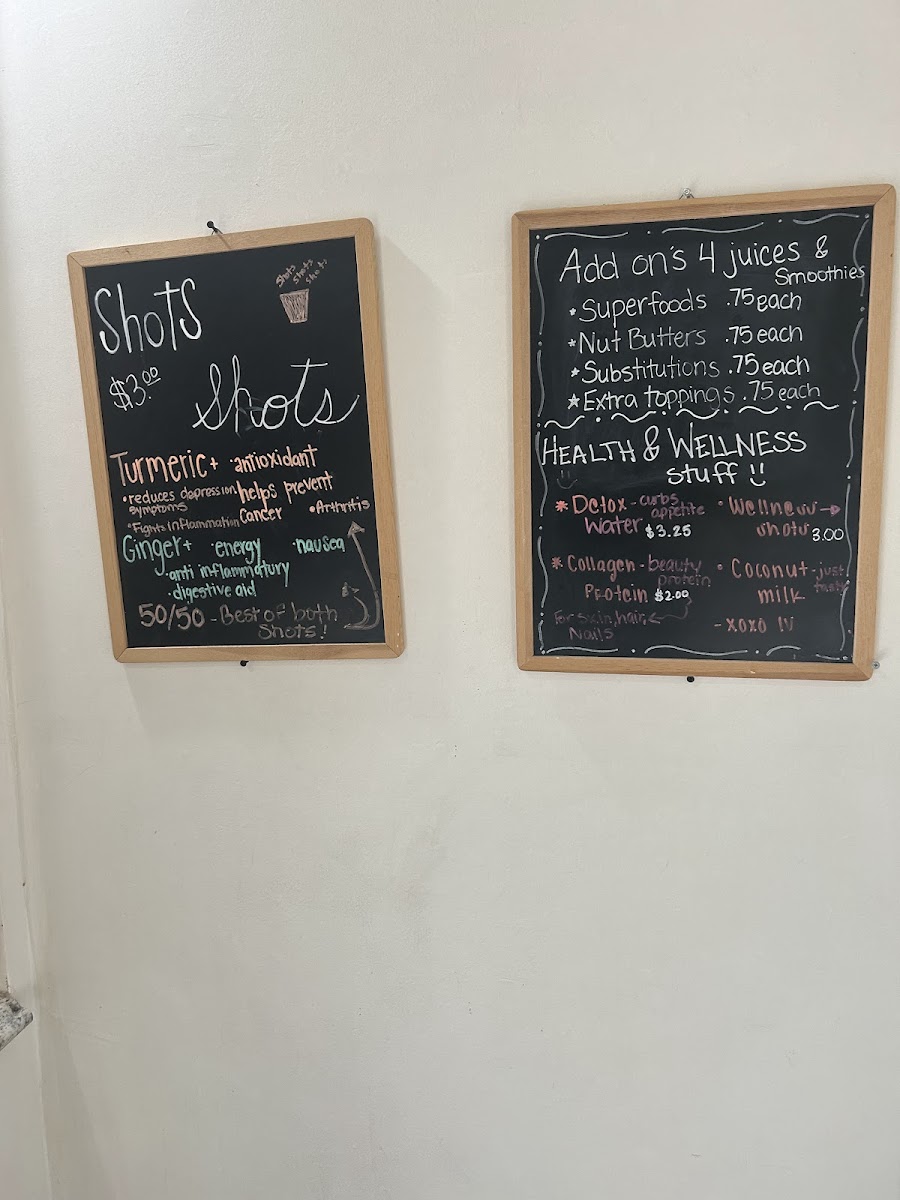 Shots
Shots
Shots
Shots
$3.00
Shots
Turmeric+ ·antioxidant
·reduces depression
symptoms
helps prevent
cancer
•Arthritis
*Fights Inflammation
Ginger+ ·energy ·nausea
·anti inflammatury
·digestive aid
50/50 - Best of both
Shots!
Add on's 4 juices &
Smoothies
*Superfoods .75 each
*Nut Butters .75 each
*Substitutions .75 each
★Extra toppings .75 each
HEALTH & WELLNESS
stuff !!
* Detox - curbs
apetite
Water $3.25
• Wellness →
shots 3.00
* Collagen - beauty
protein
Protein $2.00
For skin, hair, ←
Nails
• Coconut - just
tasty
milk
- xoxo !!